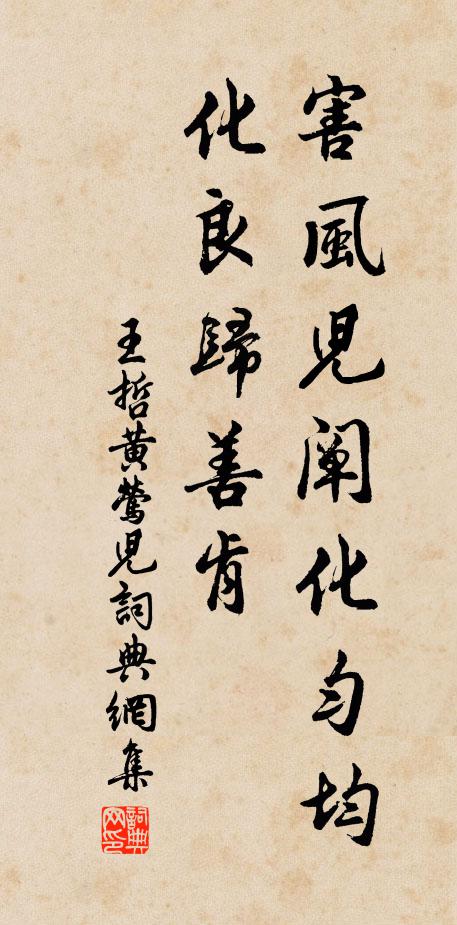 害風児闡化匀均
化良歸善肯
王哲黄鶯児詞典網集
詞典网印